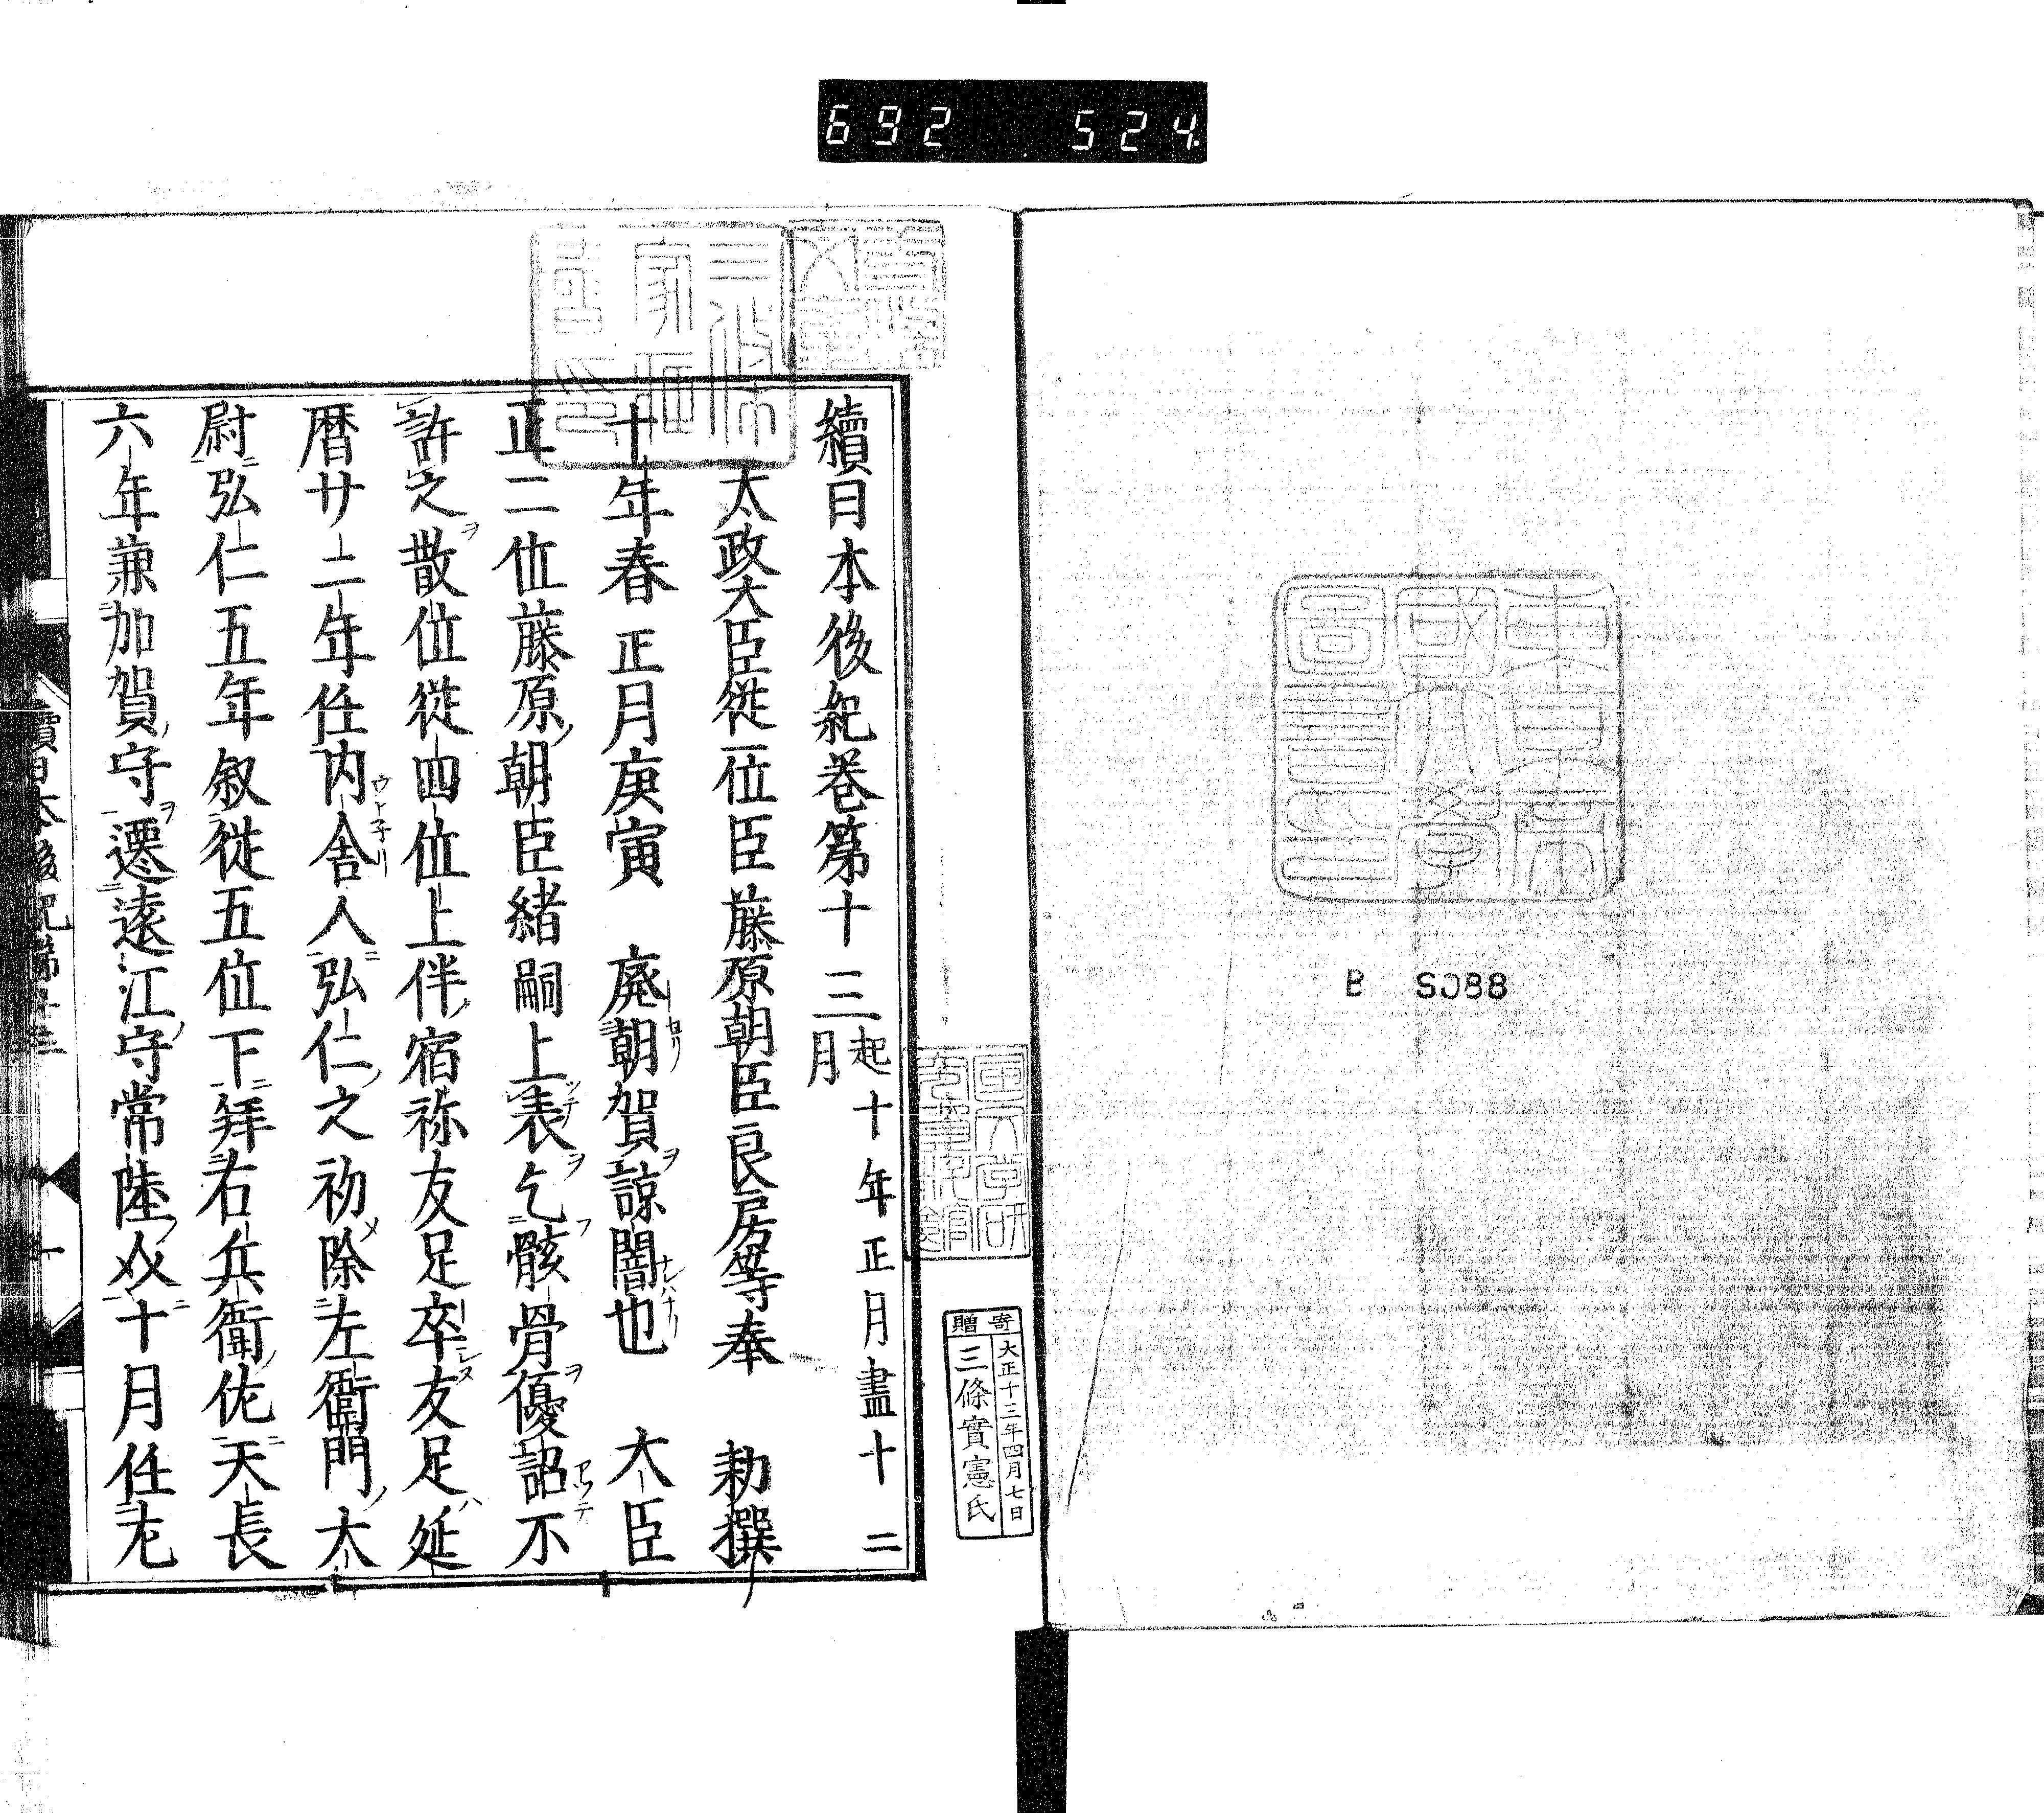 692 524
東京帝國大學圖書印
B 5088
寄贈
大正十三年四月七日
三條實憲氏
續日本後紀巻第十三 起十年正月盡十二月
太政大臣從一位臣藤原朝臣良房等奉 勅撰
十年春正月庚寅 廃朝賀諒闇也 大臣
正二位藤原朝臣緒嗣上表乞骸骨優詔不
許之散位從四位上伴宿祢友足卒友足延
暦廿二年任内舎人弘仁之初除左衛門大
尉弘仁五年叙從五位下拜右兵衛佐天長
六年兼加賀守遷遠江守常陸
十月任
續日本後紀